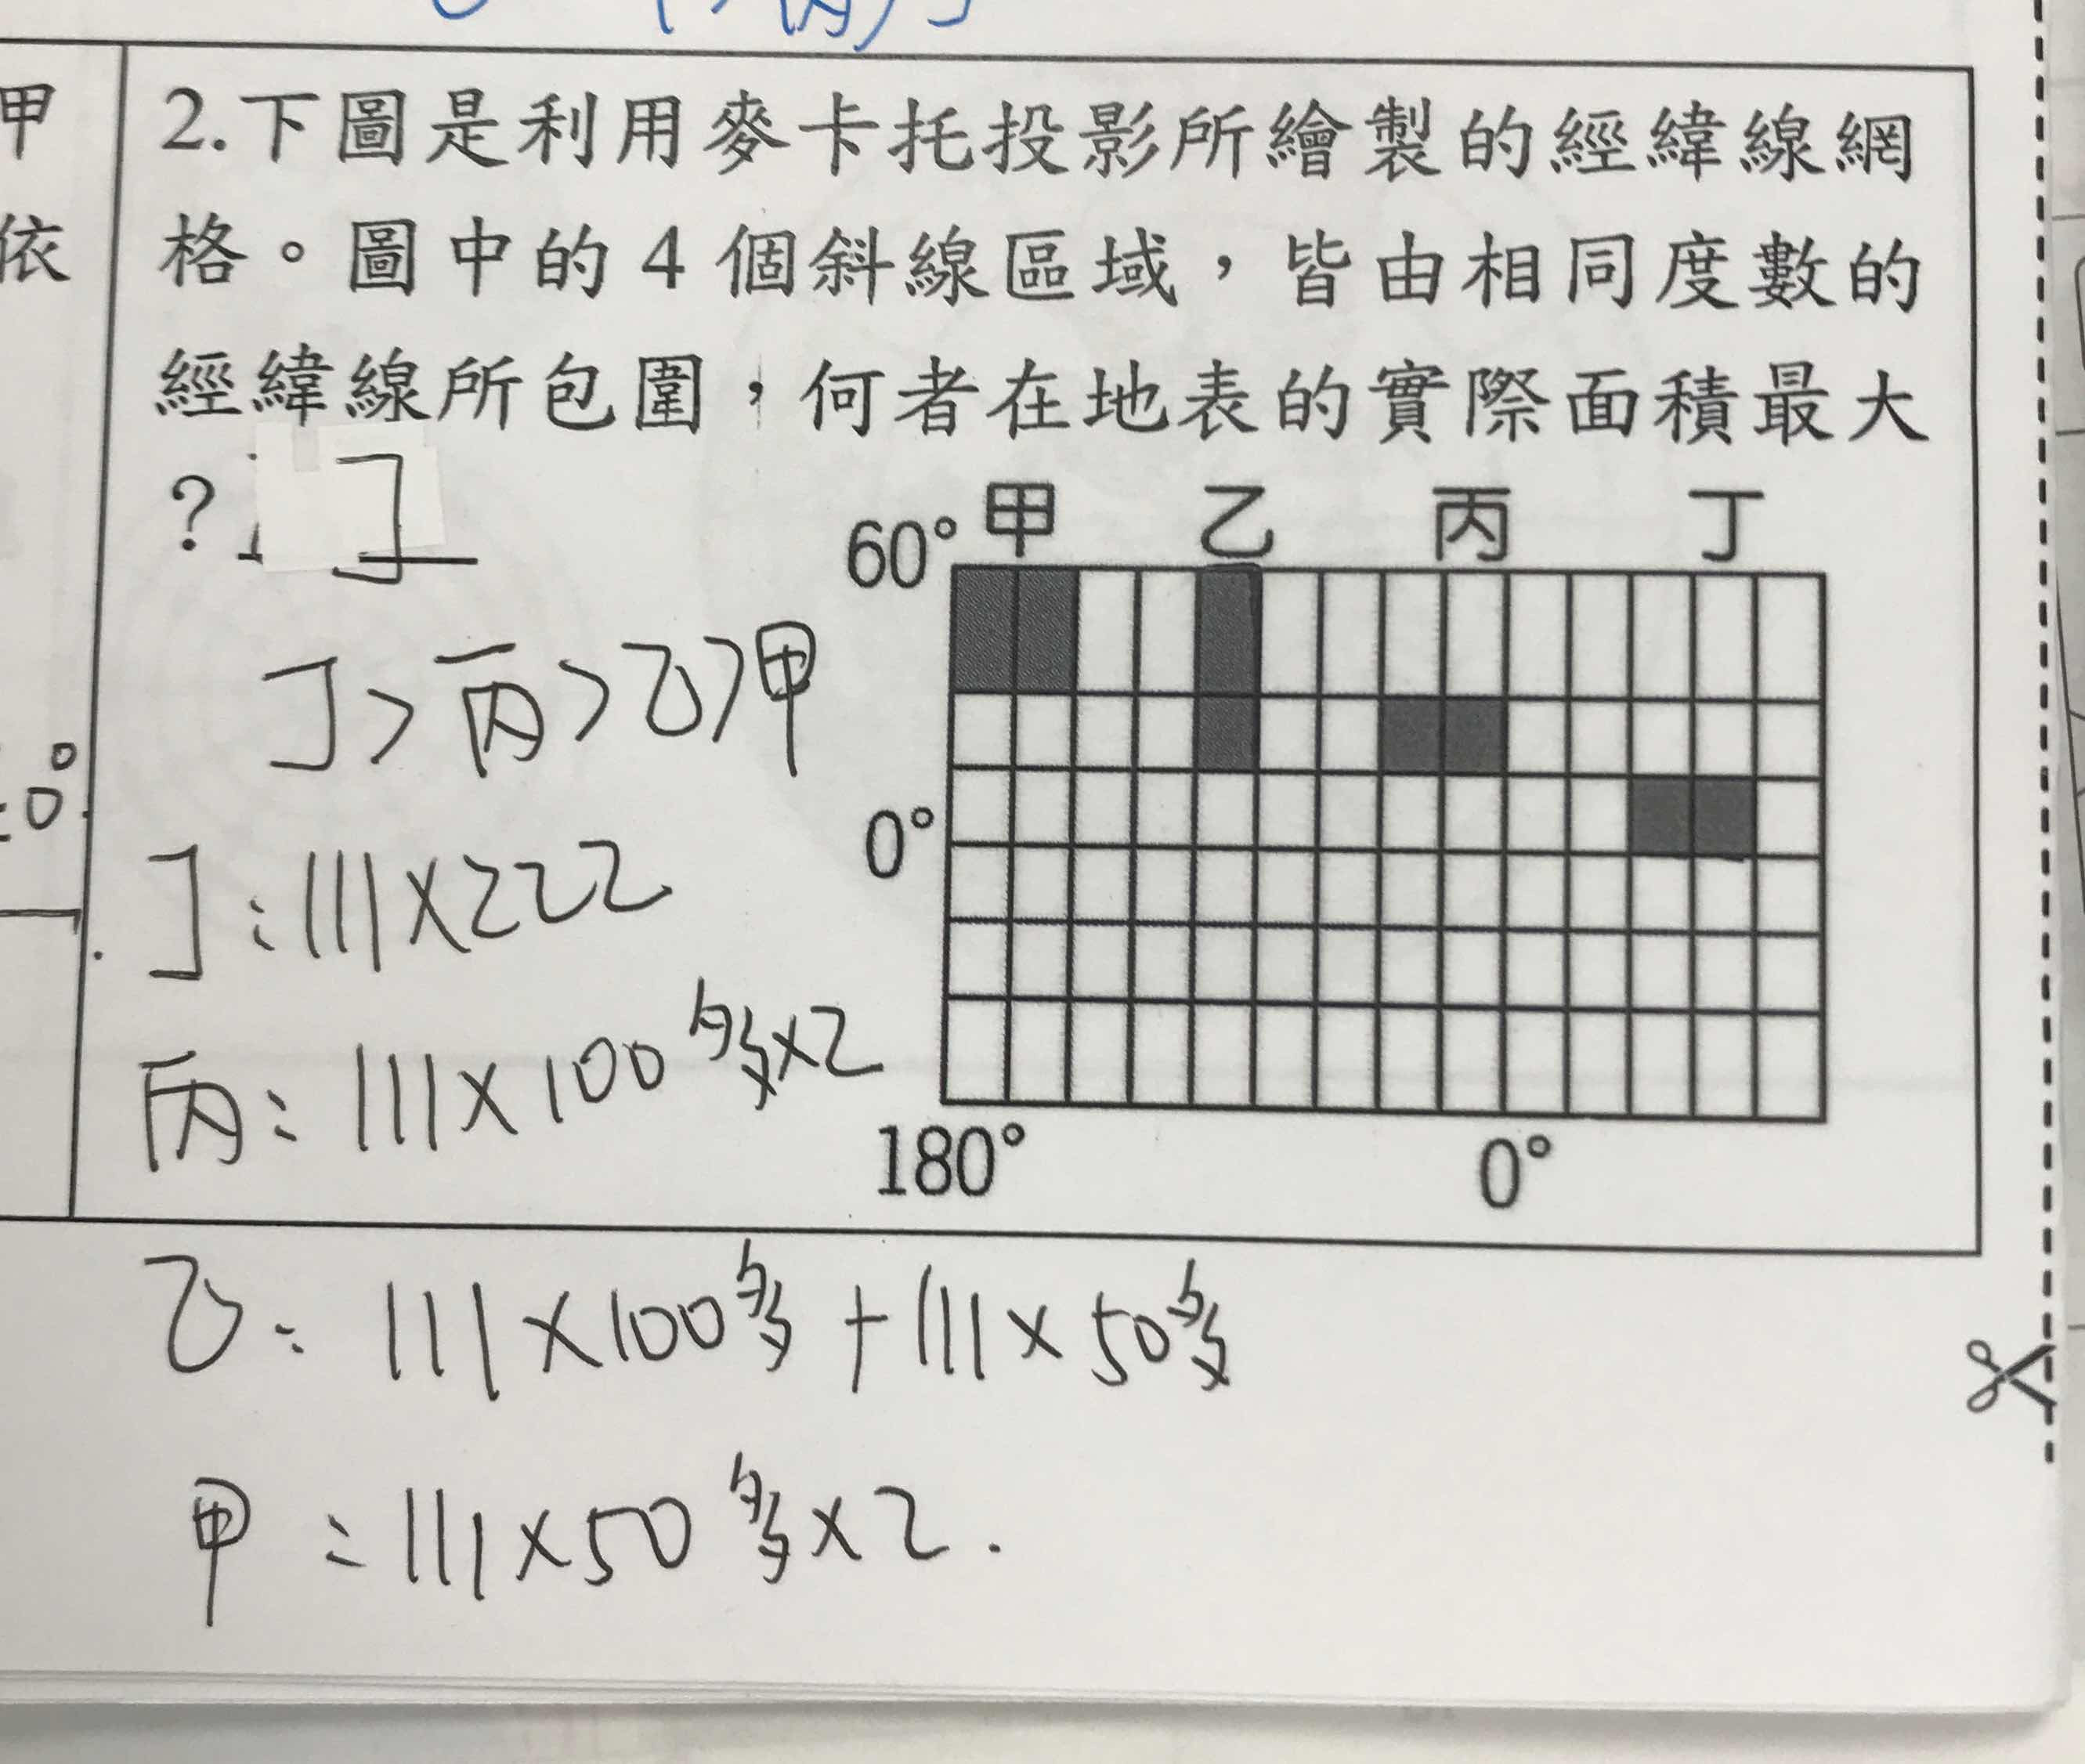 甲
依
2.下圖是利用麥卡托投影所繪製的經緯線網
格。圖中的4個斜線區域，皆由相同度數的
經緯線所包圍，何者在地表的實際面積最大
？丁
60° 甲 乙 丙 丁
0°
180° 0°
丁>丙>乙>甲
丁:111×222
丙:111×100多×2
乙:111×100多+111×50多
甲:111×50多×2.